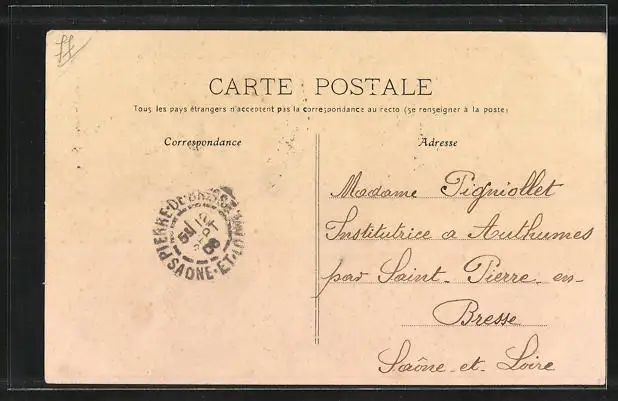 CARTE POSTALE
Tous les pays étrangers n'acceptent pas la correspondance au recto (se renseigner à la poste)
Correspondance
Adresse
PIERRE-DE-BRESSE
SAONE-ET-L
Madame Pigniollet
Institutrice a Authumes
par Saint-Pierre-en-
Bresse
Saône-et-Loire